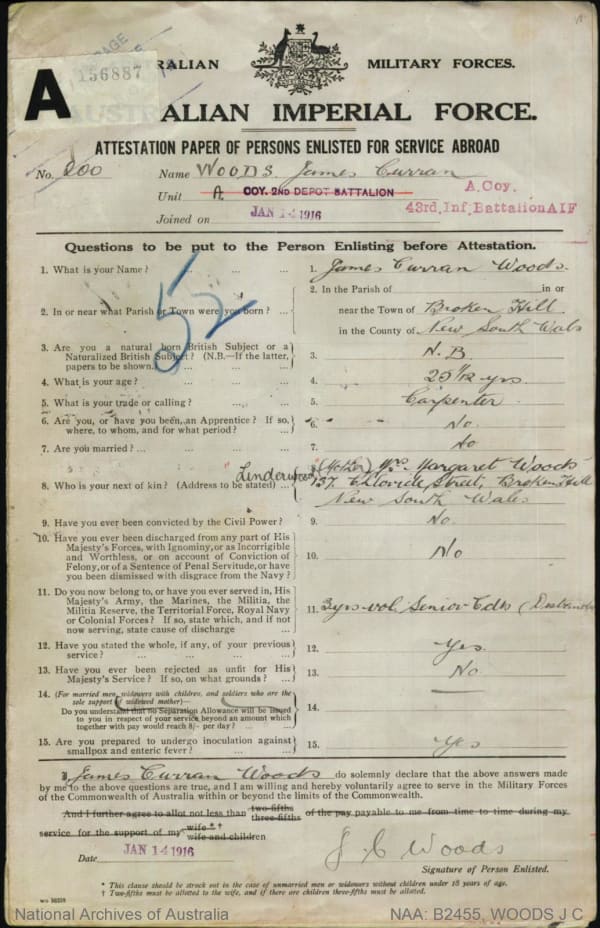 156887
A
AUSTRALIAN MILITARY FORCES.
AUSTRALIAN IMPERIAL FORCE.
ATTESTATION PAPER OF PERSONS ENLISTED FOR SERVICE ABROAD
No. 200 Name WOODS. James Curran
Unit A COY. 2ND DEPOT BATTALION A. Coy.
43rd. Inf. Battalion AIF
Joined on JAN 14 1916
Questions to be put to the Person Enlisting before Attestation.
52
1. What is your Name? ... ... ... 1. James Curran Woods.
2. In or near what Parish or Town were you born? ... 2. In the Parish of in or
near the Town of Broken Hill
in the County of New South Wales
3. Are you a natural born British Subject or a
Naturalized British Subject? (N.B.—If the latter,
papers to be shown.) 3. N.B.
4. What is your age? ... ... ... 4. 25 1/12 yrs.
5. What is your trade or calling? ... ... 5. Carpenter
6. Are you, or have you been, an Apprentice? If so,
where, to whom, and for what period? ... 6. No
7. Are you married? ... ... ... 7. No
8. Who is your next of kin? (Address to be stated) ... 8. (Mother) Mrs. Margaret Woods
137 Chloride Street, Broken Hill
New South Wales
9. Have you ever been convicted by the Civil Power? 9. No.
10. Have you ever been discharged from any part of His
Majesty's Forces, with Ignominy, or as Incorrigible
and Worthless, or on account of Conviction of
Felony, or of a Sentence of Penal Servitude, or have
you been dismissed with disgrace from the Navy? 10. No
11. Do you now belong to, or have you ever served in, His
Majesty's Army, the Marines, the Militia, the
Militia Reserve, the Territorial Force, Royal Navy
or Colonial Forces? If so, state which, and if not
now serving, state cause of discharge ... 11. 3 yrs vol. Senior Cdts (Disbanded
12. Have you stated the whole, if any, of your previous
service? ... ... ... 12. Yes.
13. Have you ever been rejected as unfit for His
Majesty's Service? If so, on what grounds? 13. No
14. (For married men, widowers with children, and soldiers who are the
sole support of widowed mother)—
Do you understand that no Separation Allowance will be issued
to you in respect of your service beyond an amount which
together with pay would reach 8/- per day? ... 14.
15. Are you prepared to undergo inoculation against
smallpox and enteric fever? ... ... 15. Yes
I, James Curran Woods do solemnly declare that the above answers made
by me to the above questions are true, and I am willing and hereby voluntarily agree to serve in the Military Forces
of the Commonwealth of Australia within or beyond the limits of the Commonwealth.
And I further agree to allot not less than two-fifths three-fifths of the pay payable to me from time to time during my
service for the support of my wife*† wife and children
Date JAN 14 1916 J C Woods
Signature of Person Enlisted.
* This clause should be struck out in the case of unmarried men or widowers without children under 18 years of age.
† Two-fifths must be allotted to the wife, and if there are children three-fifths must be allotted.
National Archives of Australia NAA: B2455, WOODS J C